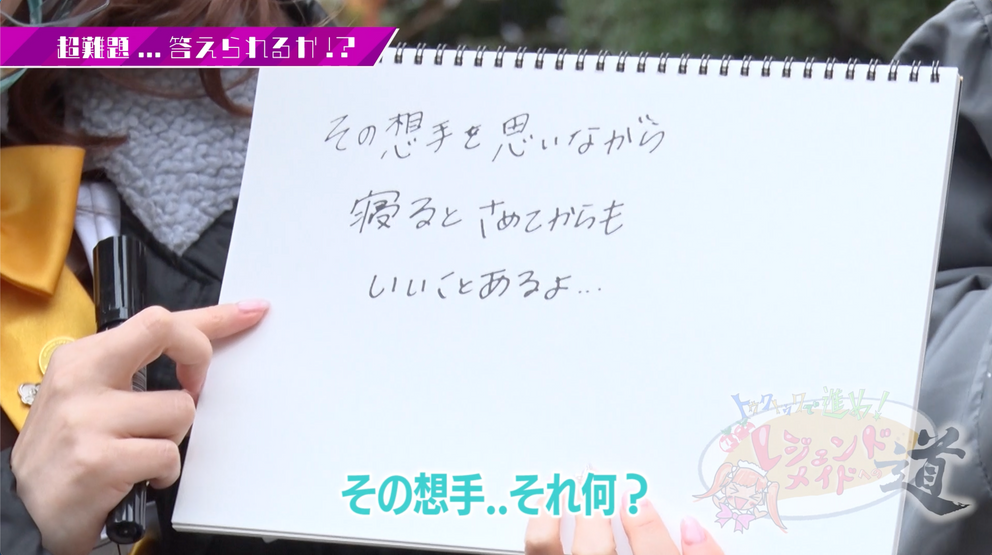 超難題...答えられるか!?
その想手を思いながら
寝るとさめてからも
いいことあるよ...
トゥワイツワで進め!
レジェンド
メイド
道
その想手..それ何?